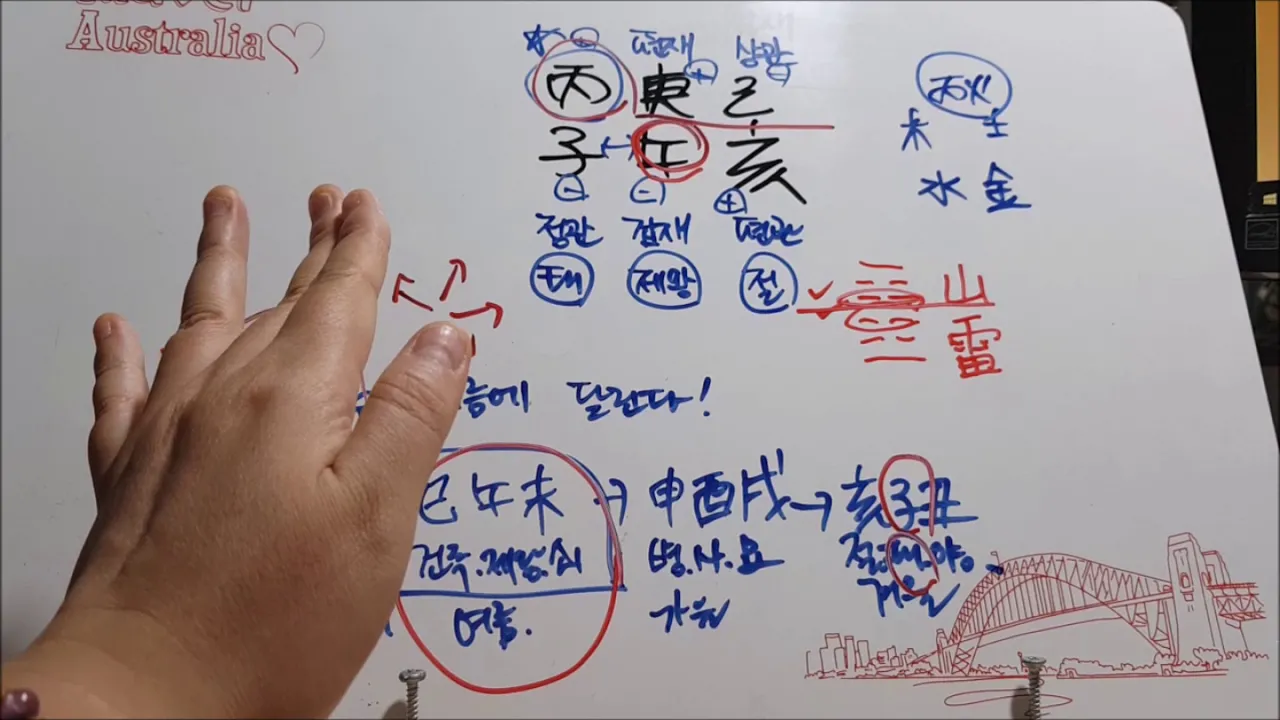 Australia
편재 상관
丙 庚 己
子 ↔ 午 亥
정관 겁재 편관
태 제왕 절
丙火
木 土
水 金
山
雷
에 달린다!
巳午未 → 申酉戌 → 亥子丑
건록.제왕.쇠 병.사.묘 절.태.양
여름. 가을 겨울